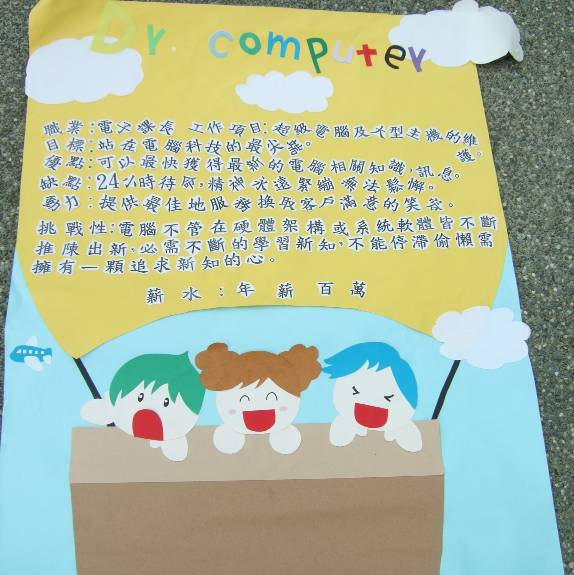 Dr. computer
職業:電父課長 工作項目:超級電腦及大型主機的維護。
目標:站在電腦科技的最尖端。
優點:可以最快獲得最新的電腦相關知識,訊息。
缺點:24小時待命,精神永遠緊繃無法鬆懈。
動力:提供最佳地服務換取客戶滿意的笑容。
挑戰性:電腦不管在硬體架構或系統軟體皆不斷
推陳出新,必需不斷的學習新知,不能停滯偷懶需
擁有一顆追求新知的心。
薪水:年薪百萬